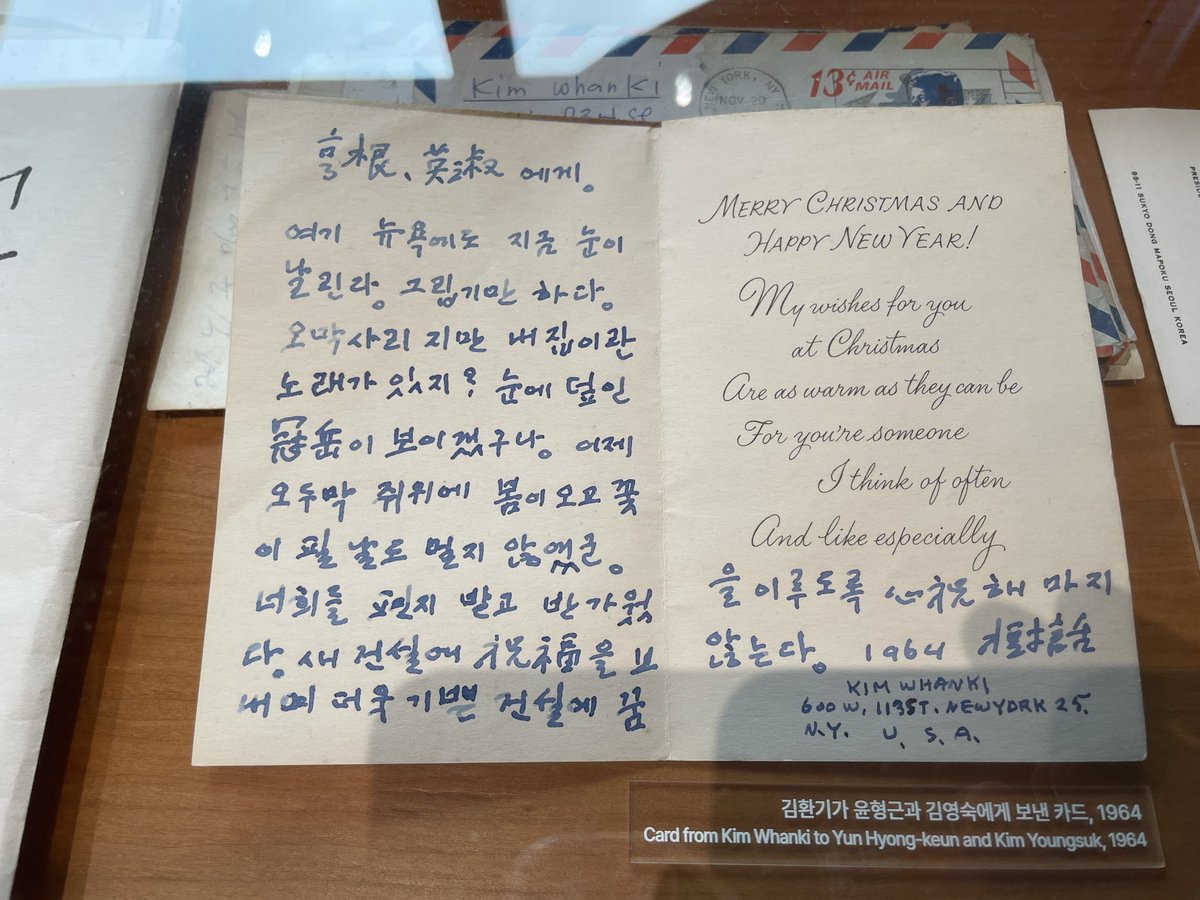 Kim Whanki
NEW YORK, NY
NOV 29
13¢ AIR
MAIL
亨根、英淑 에게。
여기 뉴욕에도 지금 눈이
날린다。 그립기만 하다。
오막사리 지만 내 집이란
노래가 있지? 눈에 덮인
冠岳이 보이겠구나。 이제
오두막 쥐위에 봄이 오고 꽃
이 필 날도 멀지 않앴군。
너희들 편지 받고 반가웠
다。 새 건설에 祝福을 보
내며 더욱 기쁜 건설에 꿈
MERRY CHRISTMAS AND
HAPPY NEW YEAR!
My wishes for you
at Christmas
Are as warm as they can be
For you're someone
I think of often
And like especially
을 이루도록 心祝해 마지
않는다。 1964
KIM WHANKI
600 W. 113ST. NEWYORK 25.
N.Y. U. S. A.
98-11 SUKYO DONG MAPOKU SEOUL KOREA
김환기가 윤형근과 김영숙에게 보낸 카드, 1964
Card from Kim Whanki to Yun Hyong-keun and Kim Youngsuk, 1964